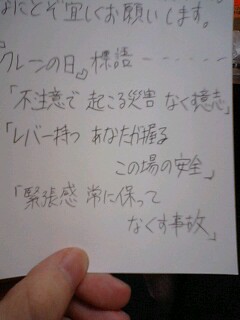 なにとぞ宜しくお願いします。
『クレーンの日』標語 - - - - - -
「不注意で 起こる災害 なくす意志」
「レバー持つ あなたが握る
この場の安全」
「緊張感 常に保って
なくす事故」